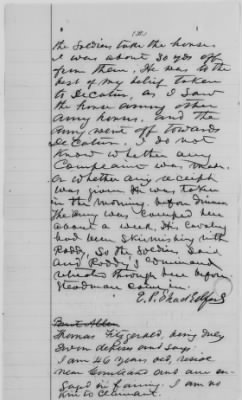 (3)
the soldiers take the horse.
I was about 30 yds off
from them. He was to the
best of my belief taken
to Decatur, as I saw
the horse among other
army horses. and the
army went off towards
Decatur. I do not
Know whether any
Complaint was made.
or whether any receipt
was given. He was taken
in the morning before dinner
The army was camped here
about a week. His cavalry
had been skirmishing with
Roddy, so the soldiers said
and Roddy's command
retreated through here before
Steadman came in.
E. P. Shackelford
Thomas Fitzgerald, being duly
sworn deposes and says:
I am 46 years old, reside
near Courtland and am en-
gaged in farming. I am no
kin to claimant.